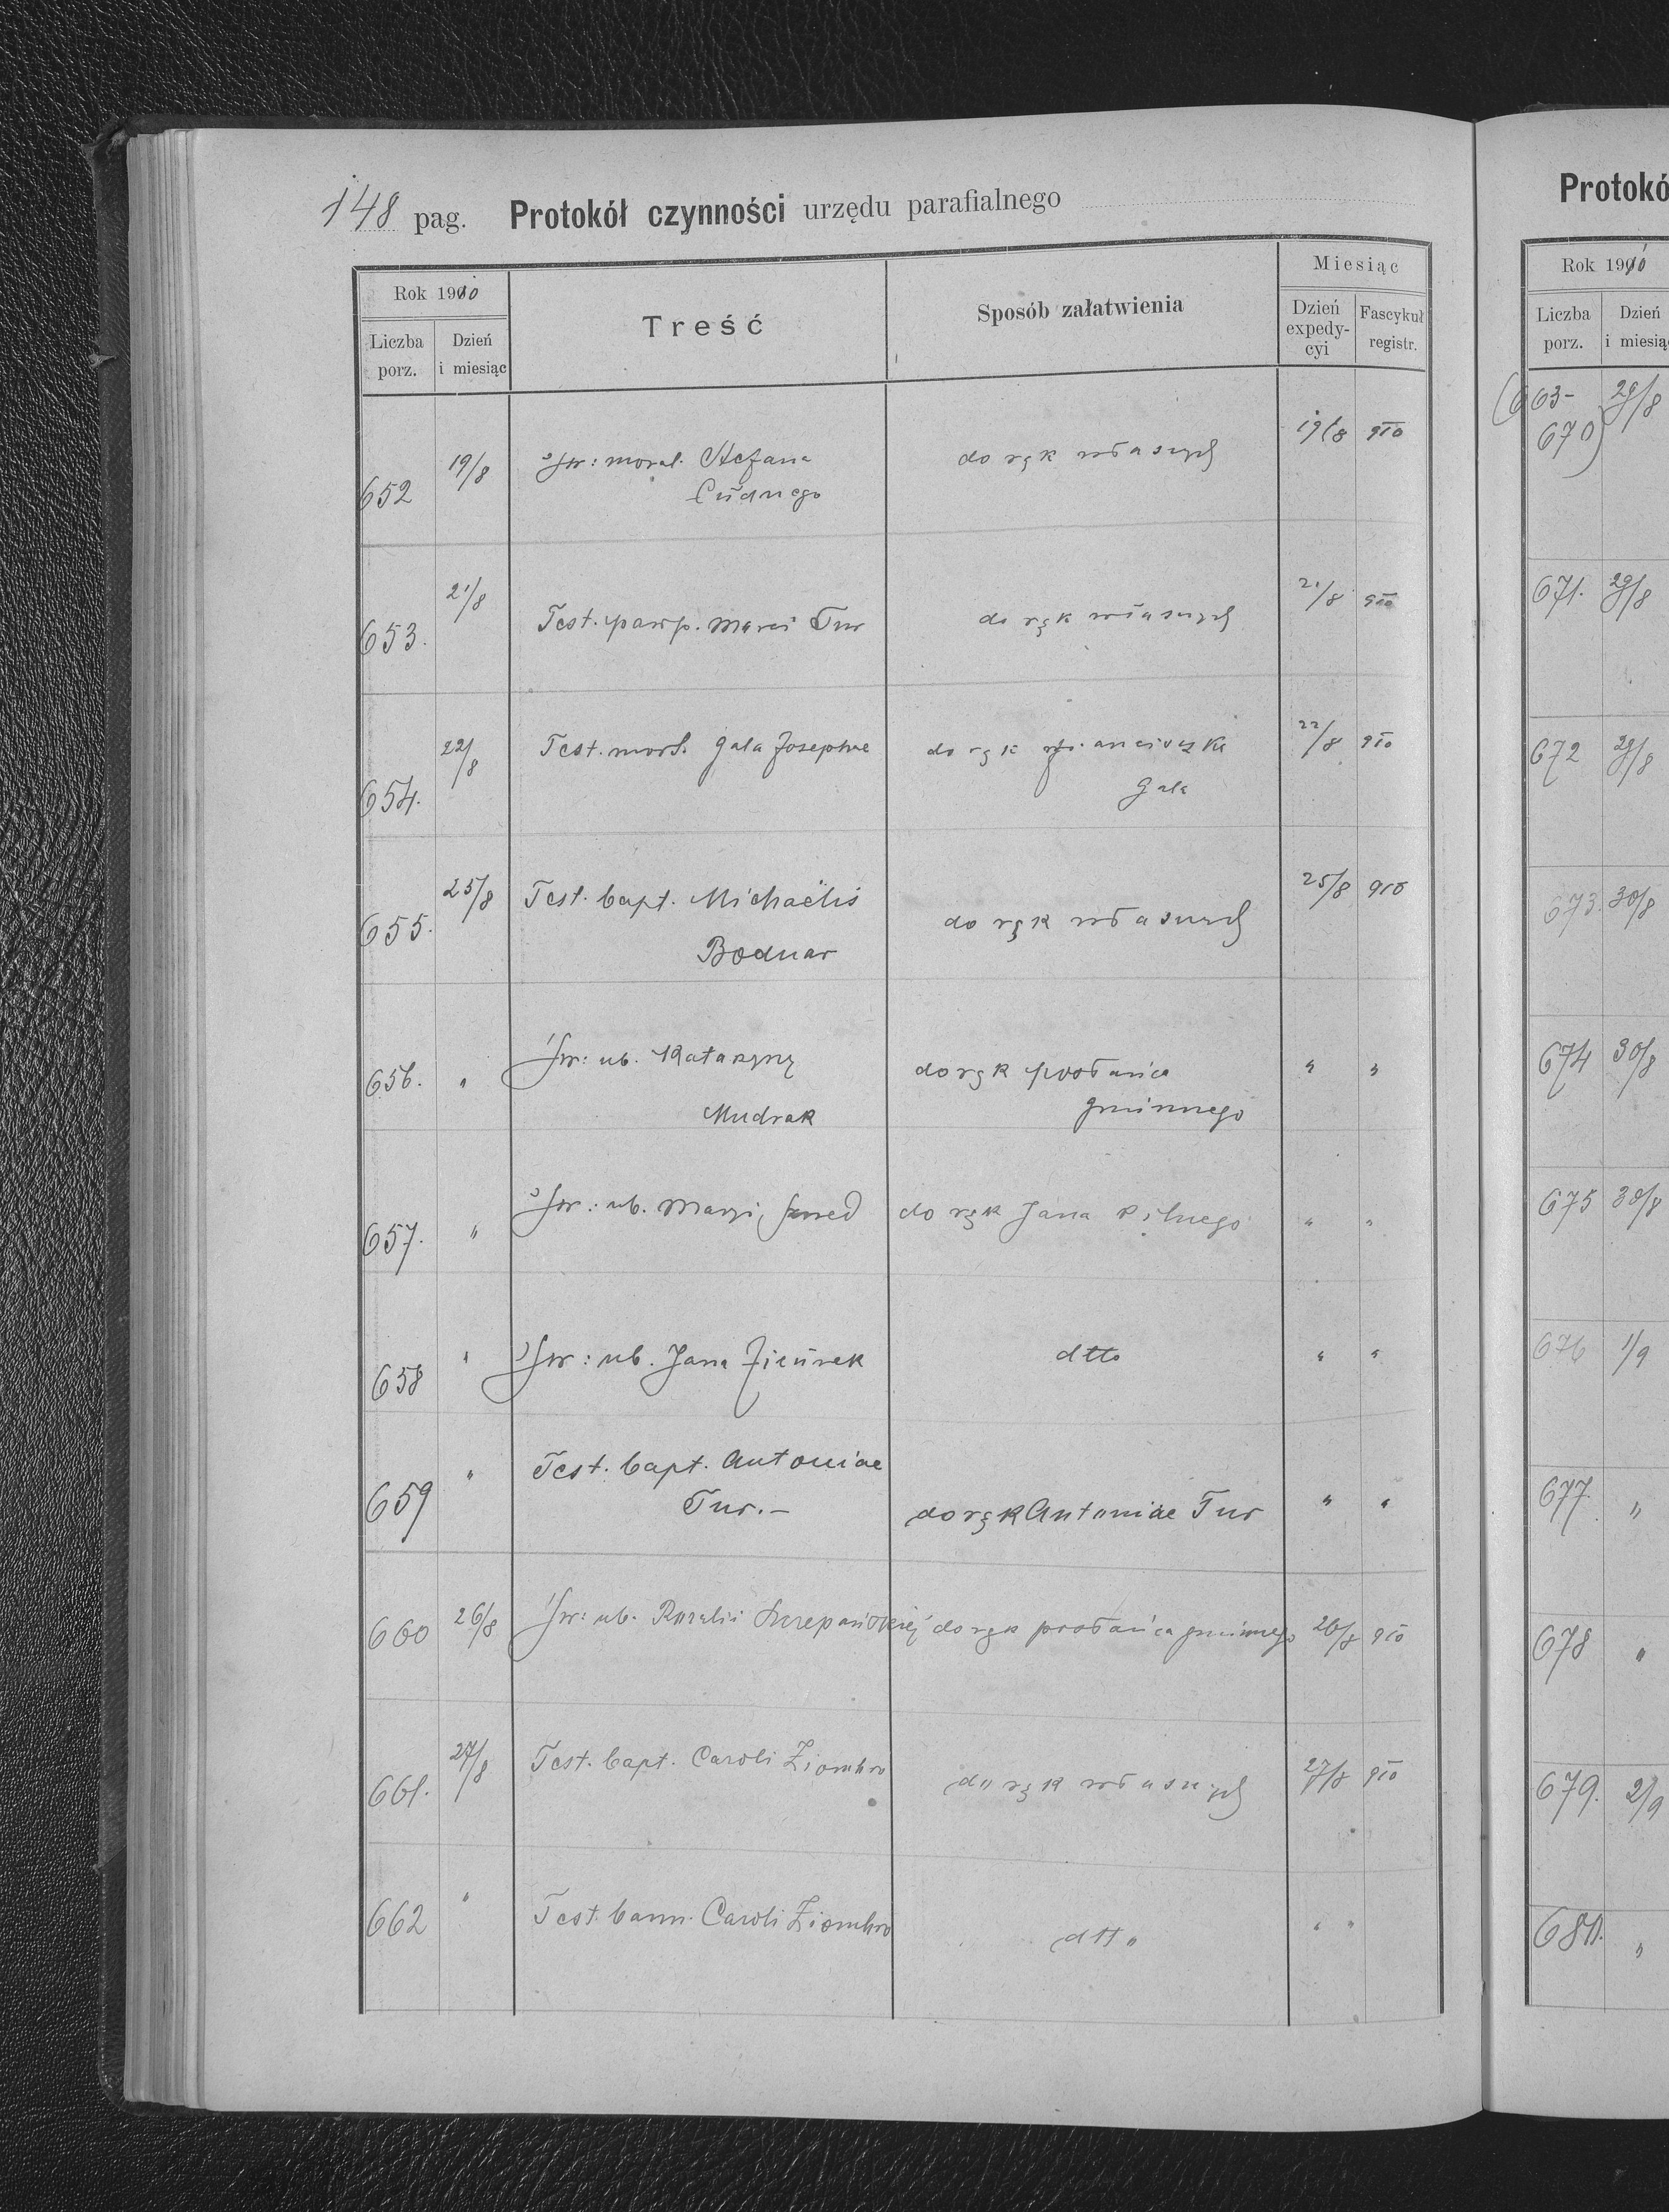 148 pag. Protokół czynności urzędu parafialnego
Rok 1910
Liczba porz.
Dzień i miesiąc
Treść
Sposób załatwienia
Miesiąc
Dzień expedycyi
Fascykuł registr.
652 19/8 Św: moral. Stefana do rąk własnych 19/8 910
Cudnego
653. 21/8 Test. paup. Marci Tur do rąk własnych 21/8 910
654. 22/8 Test. mort. Gala Josephae do rąk Franciszka 22/8 910
Gala
655. 25/8 Test. bapt. Michaëlis do rąk własnych 25/8 910
Bodnar
656. " Św: ub. Katarzyny do rąk posłańca " "
Mudrak gminnego
657. " Św: ub. Maryi do rąk Jana Pilnego " "
658 " Św: ub. Jana dtto " "
659 " Test. bapt. Antoniae
Tur.- do rąk Antoniae Tur " "
660 26/8 Św: ub. Rozalii Szczepańskiej do rąk posłańca gminnego 26/8 910
661. 27/8 Test. bapt. Caroli Ziombro do rąk własnych 27/8 910
662 " Test. bann. Caroli Ziombro dtto " "
Protokó
Rok 1910
Liczba porz.
Dzień i miesiąc
(663- 29/8
670)
671. 29/8
672 29/8
673. 30/8
674 30/8
675 30/8
676 1/9
677. "
678 "
679. 2/9
680. "